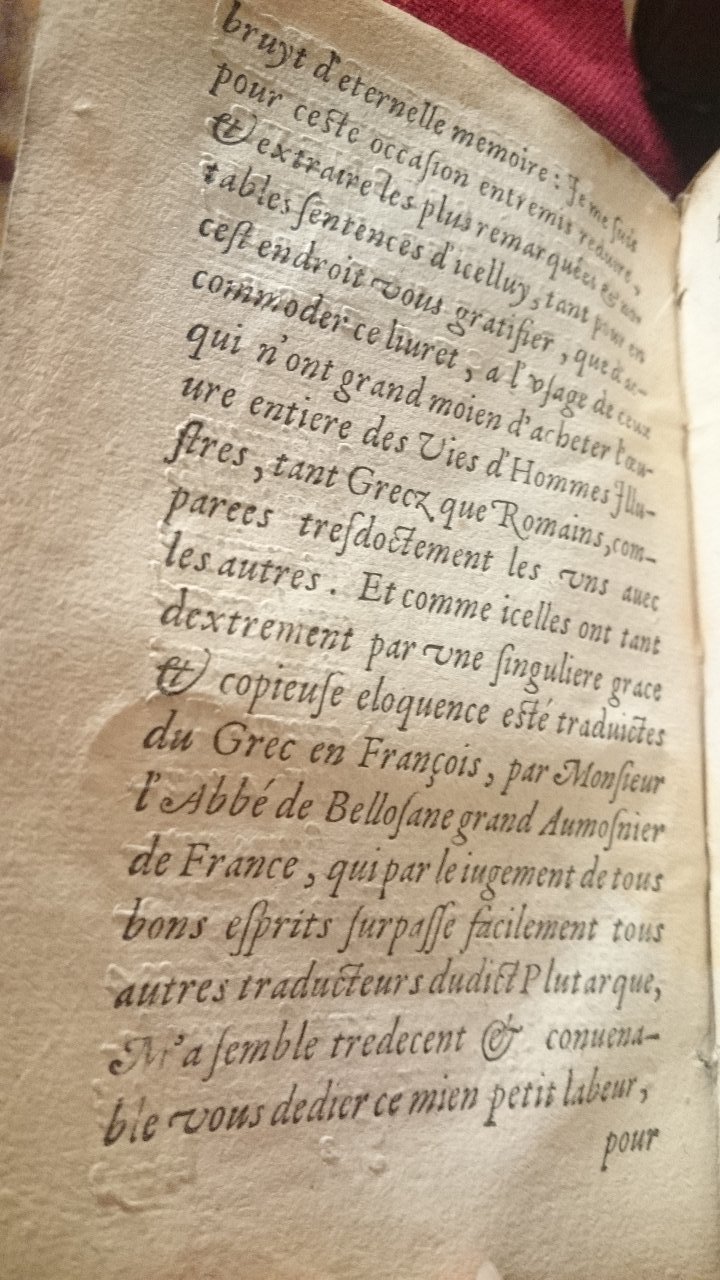 bruyt d'eternelle memoire : Je me ſuis
pour ceſte occaſion entremis reduire,
& extraire les plus remarquées & no-
tables ſentences d'icelluy, tant pour en
ceſt endroit vous gratifier, que d'ac-
commoder ce liuret, a l'vſage de ceux
qui n'ont grand moien d'acheter l'œu-
ure entiere des Vies d'Hommes Illu-
ſtres, tant Grecz que Romains, com-
parees treſdoctement les vns auec
les autres. Et comme icelles ont tant
dextrement par vne ſinguliere grace
& copieuſe eloquence eſté traduictes
du Grec en François, par Monſieur
l'Abbé de Belloſane grand Aumoſnier
de France, qui par le iugement de tous
bons eſprits ſurpaſſe facilement tous
autres traducteurs dudict Plutarque,
M'a ſemble tredecent & conuena-
ble vous dedier ce mien petit labeur,
pour